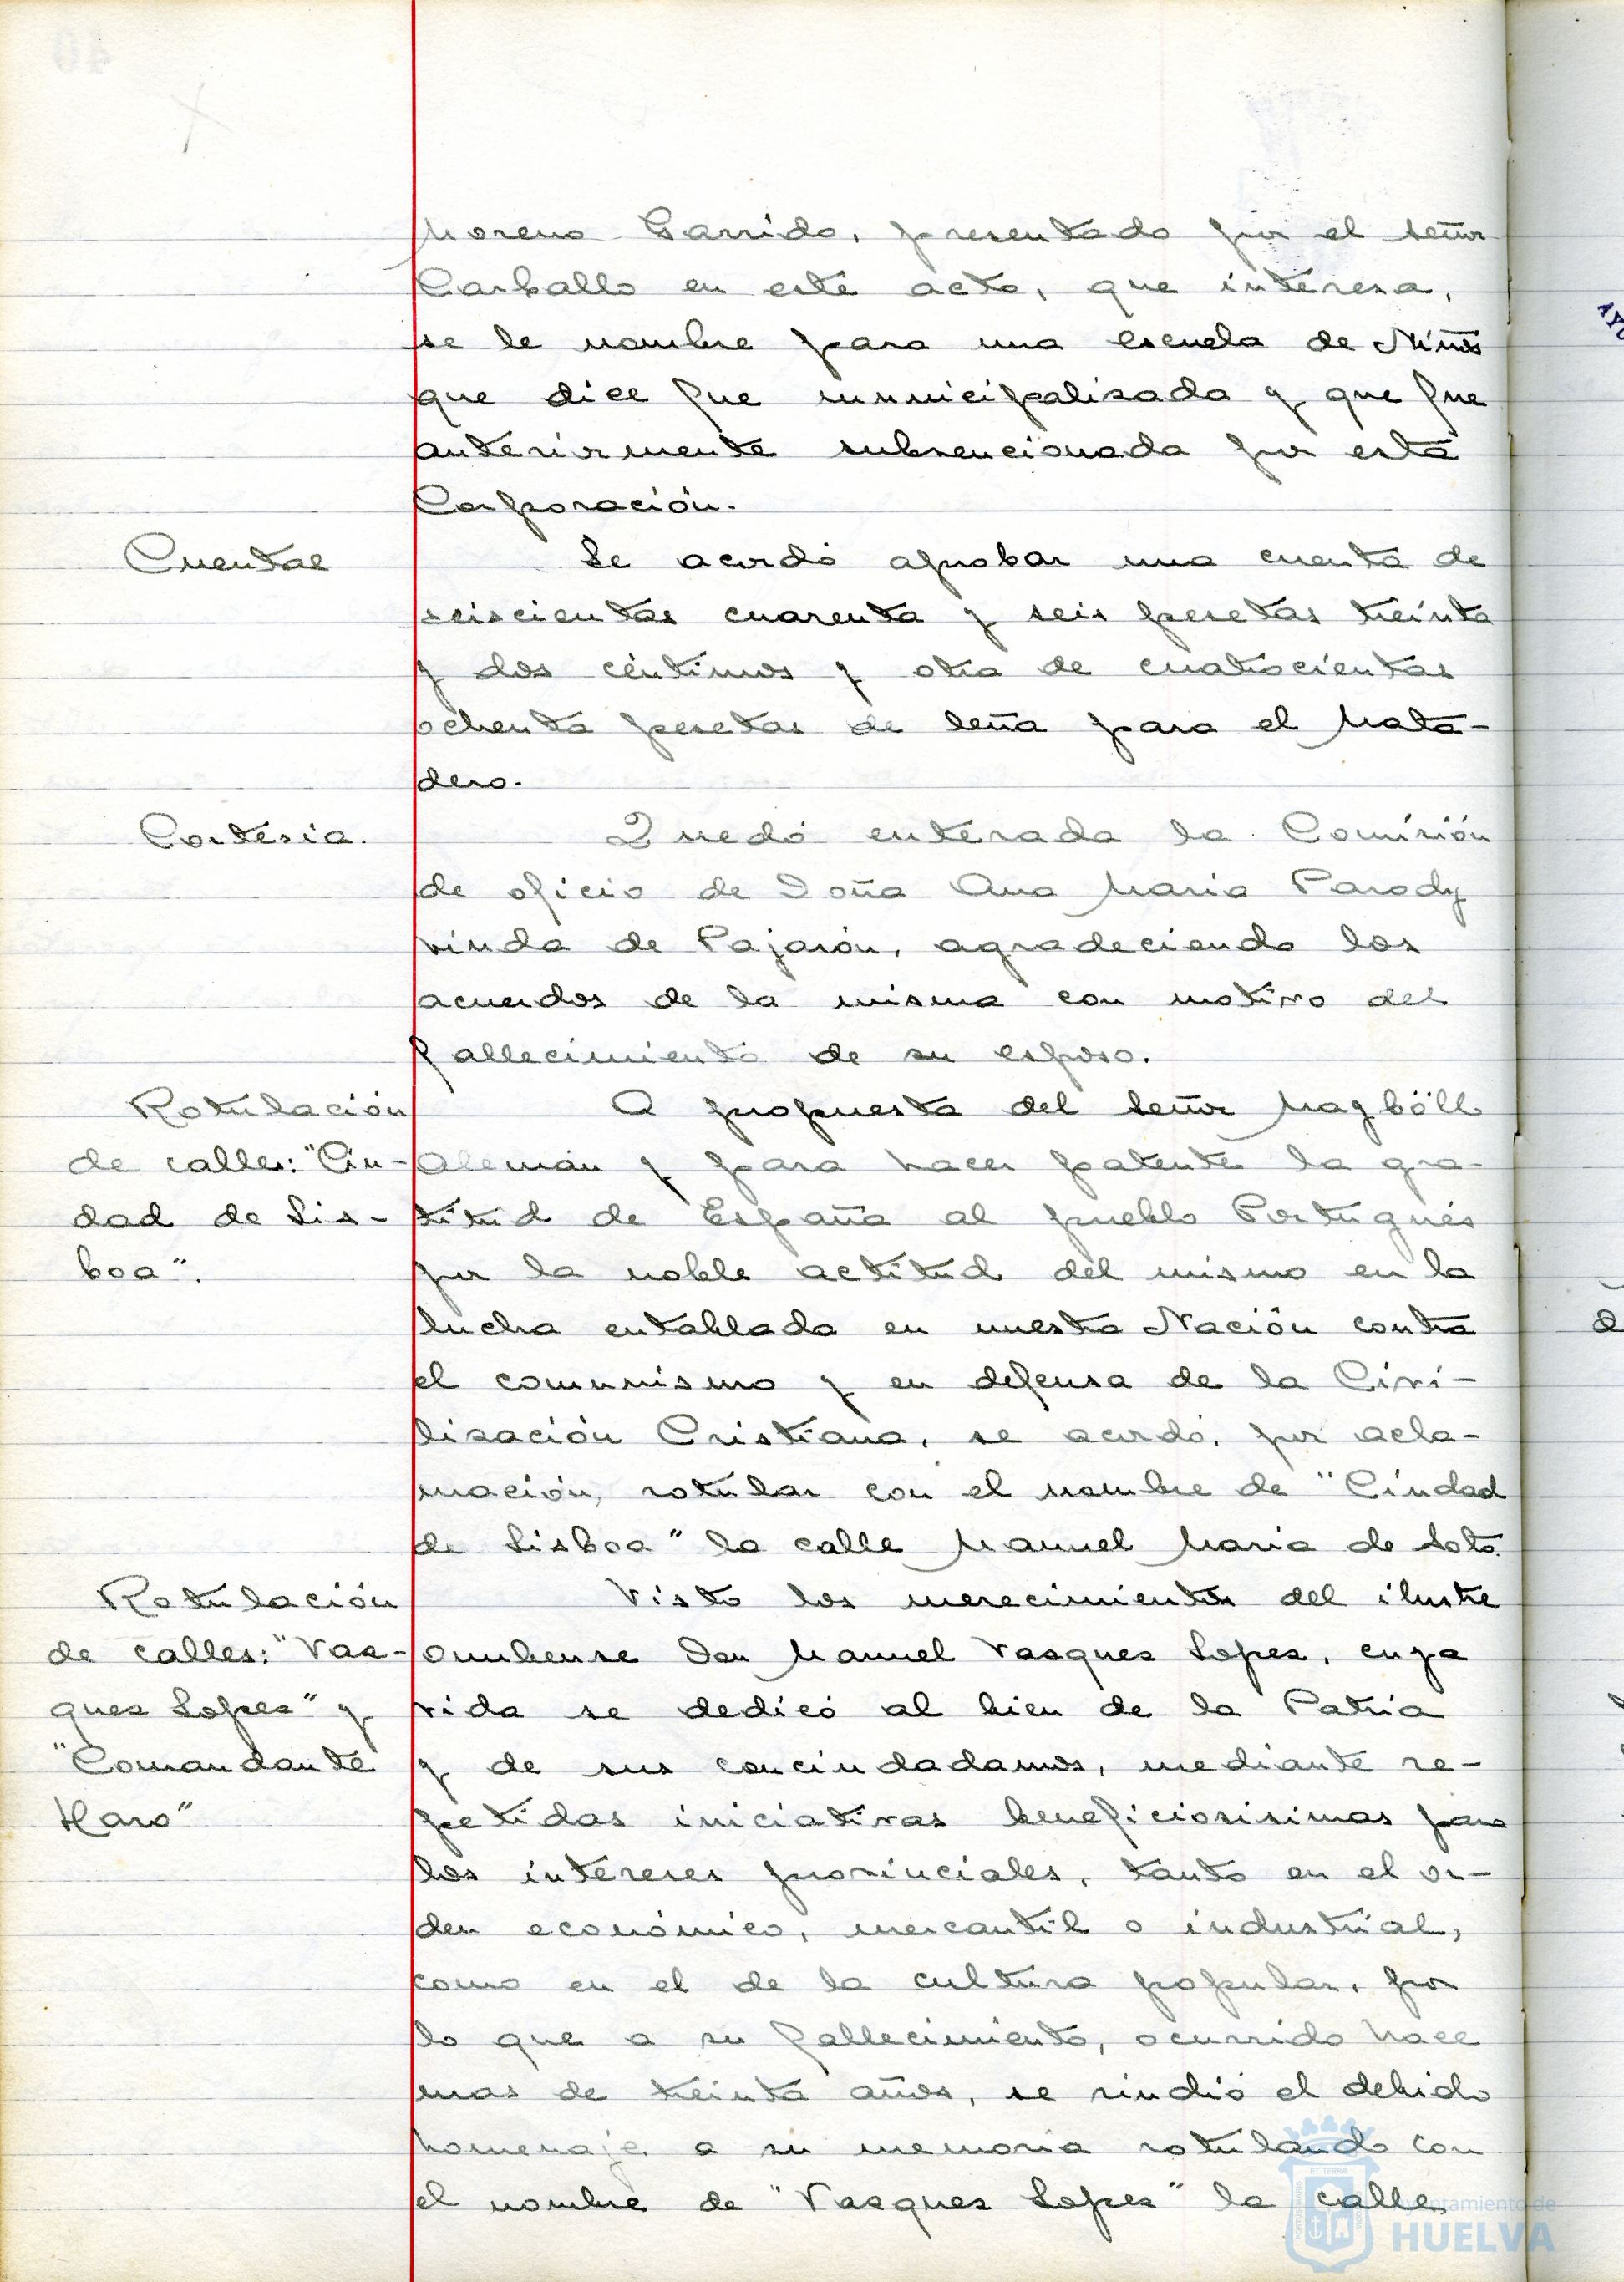 Moreno Garrido, presentado por el señor
Carballo en este acto, que interesa,
se le nombre para una escuela de Niños
que dice fue municipalizada y que fue
anteriormente subvencionada por esta
Corporación.
Cuentas
Se acordó aprobar una cuenta de
seiscientas cuarenta y seis pesetas treinta
y dos céntimos y otra de cuatrocientas
ochenta pesetas de leña para el Mata-
dero.
Cortesia.
Quedó enterada la Comisión
de oficio de Doña Ana Maria Parody
viuda de Pajarón, agradeciendo los
acuerdos de la misma con motivo del
fallecimiento de su esposo.
Rotulación
de calles: "Ciu-
dad de Lis-
boa".
A propuesta del señor Magböll
Alemán y para hacer patente la gra-
titud de España al pueblo Portugués
por la noble actitud del mismo en la
lucha entablada en nuestra Nación contra
el comunismo y en defensa de la Civi-
lización Cristiana, se acordó, por acla-
mación, rotular con el nombre de "Ciudad
de Lisboa" la calle Manuel Maria de Soto.
Rotulación
de calles: "Vaz-
quez Lopez" y
"Comandante
Haro"
Visto los merecimientos del ilustre
onubense Don Manuel Vazquez Lopez, cuya
vida se dedicó al bien de la Patria
y de sus conciudadanos, mediante re-
petidas iniciativas beneficiosisimas para
los intereses provinciales, tanto en el or-
den económico, mercantil o industrial,
como en el de la cultura popular, por
lo que a su fallecimiento, ocurrido hace
mas de treinta años, se rindió el debido
homenaje a su memoria rotulando con
el nombre de "Vazquez Lopez" la calle
Ayuntamiento de
HUELVA